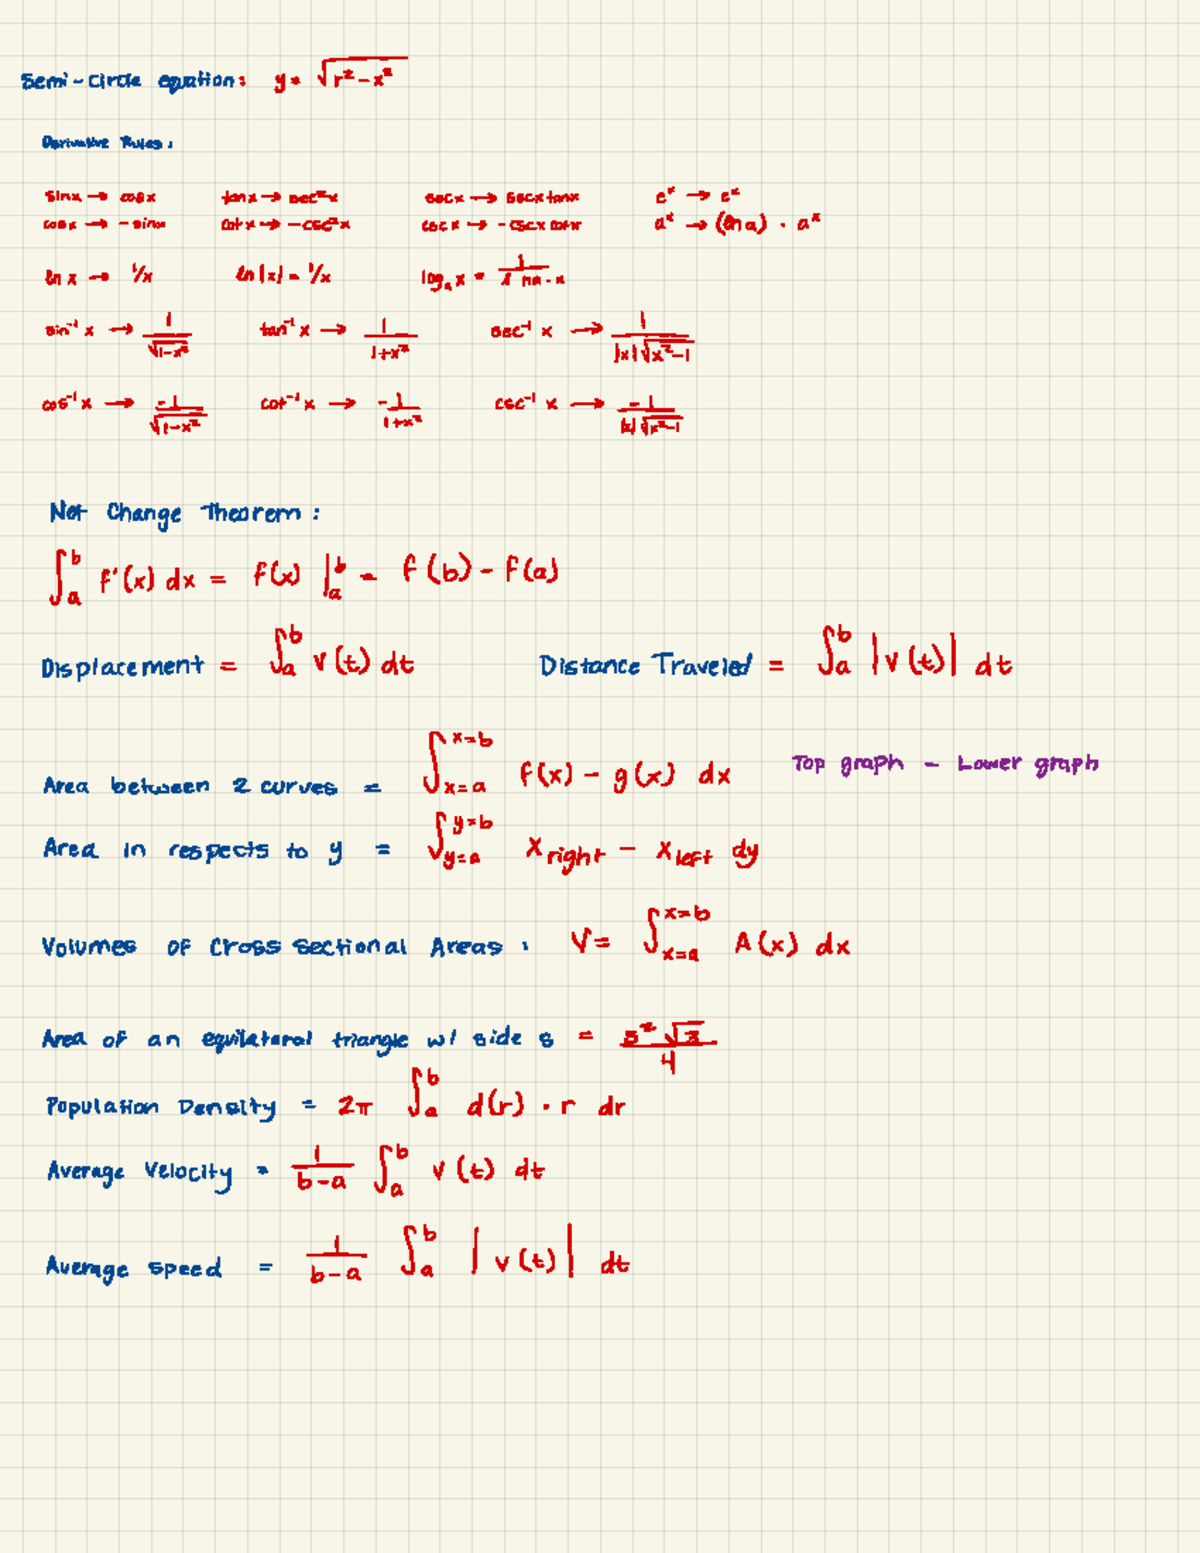 Semi-Circle equation: y = √(r² - x²)
Derivative Rules:
sinx → cosx    tanx → sec²x    secx → secx tanx    eˣ → eˣ
cosx → -sinx    cotx → -csc²x    cscx → -cscx cotx    aˣ → (ln a) · aˣ
ln x → 1/x    ln|x| = 1/x    logₐ x = 1/(ln a · x)
sin⁻¹ x → 1/√(1-x²)    tan⁻¹ x → 1/(1+x²)    sec⁻¹ x → 1/(|x|√(x²-1))
cos⁻¹ x → -1/√(1-x²)    cot⁻¹ x → -1/(1+x²)    csc⁻¹ x → -1/(|x|√(x²-1))
Net Change Theorem:
∫ₐᵇ f'(x) dx = f(x) |ₐᵇ = f(b) - f(a)
Displacement = ∫ₐᵇ v(t) dt    Distance Traveled = ∫ₐᵇ |v(t)| dt
Area between 2 curves = ∫_{x=a}^{x=b} f(x) - g(x) dx    Top graph - Lower graph
Area in respects to y = ∫_{y=a}^{y=b} x_right - x_left dy
Volumes of Cross sectional Areas: V = ∫_{x=a}^{x=b} A(x) dx
Area of an equilateral triangle w/ side s = s²√3/4
Population Density = 2π ∫ₐᵇ d(r) · r dr
Average Velocity = 1/(b-a) ∫ₐᵇ v(t) dt
Average speed = 1/(b-a) ∫ₐᵇ |v(t)| dt